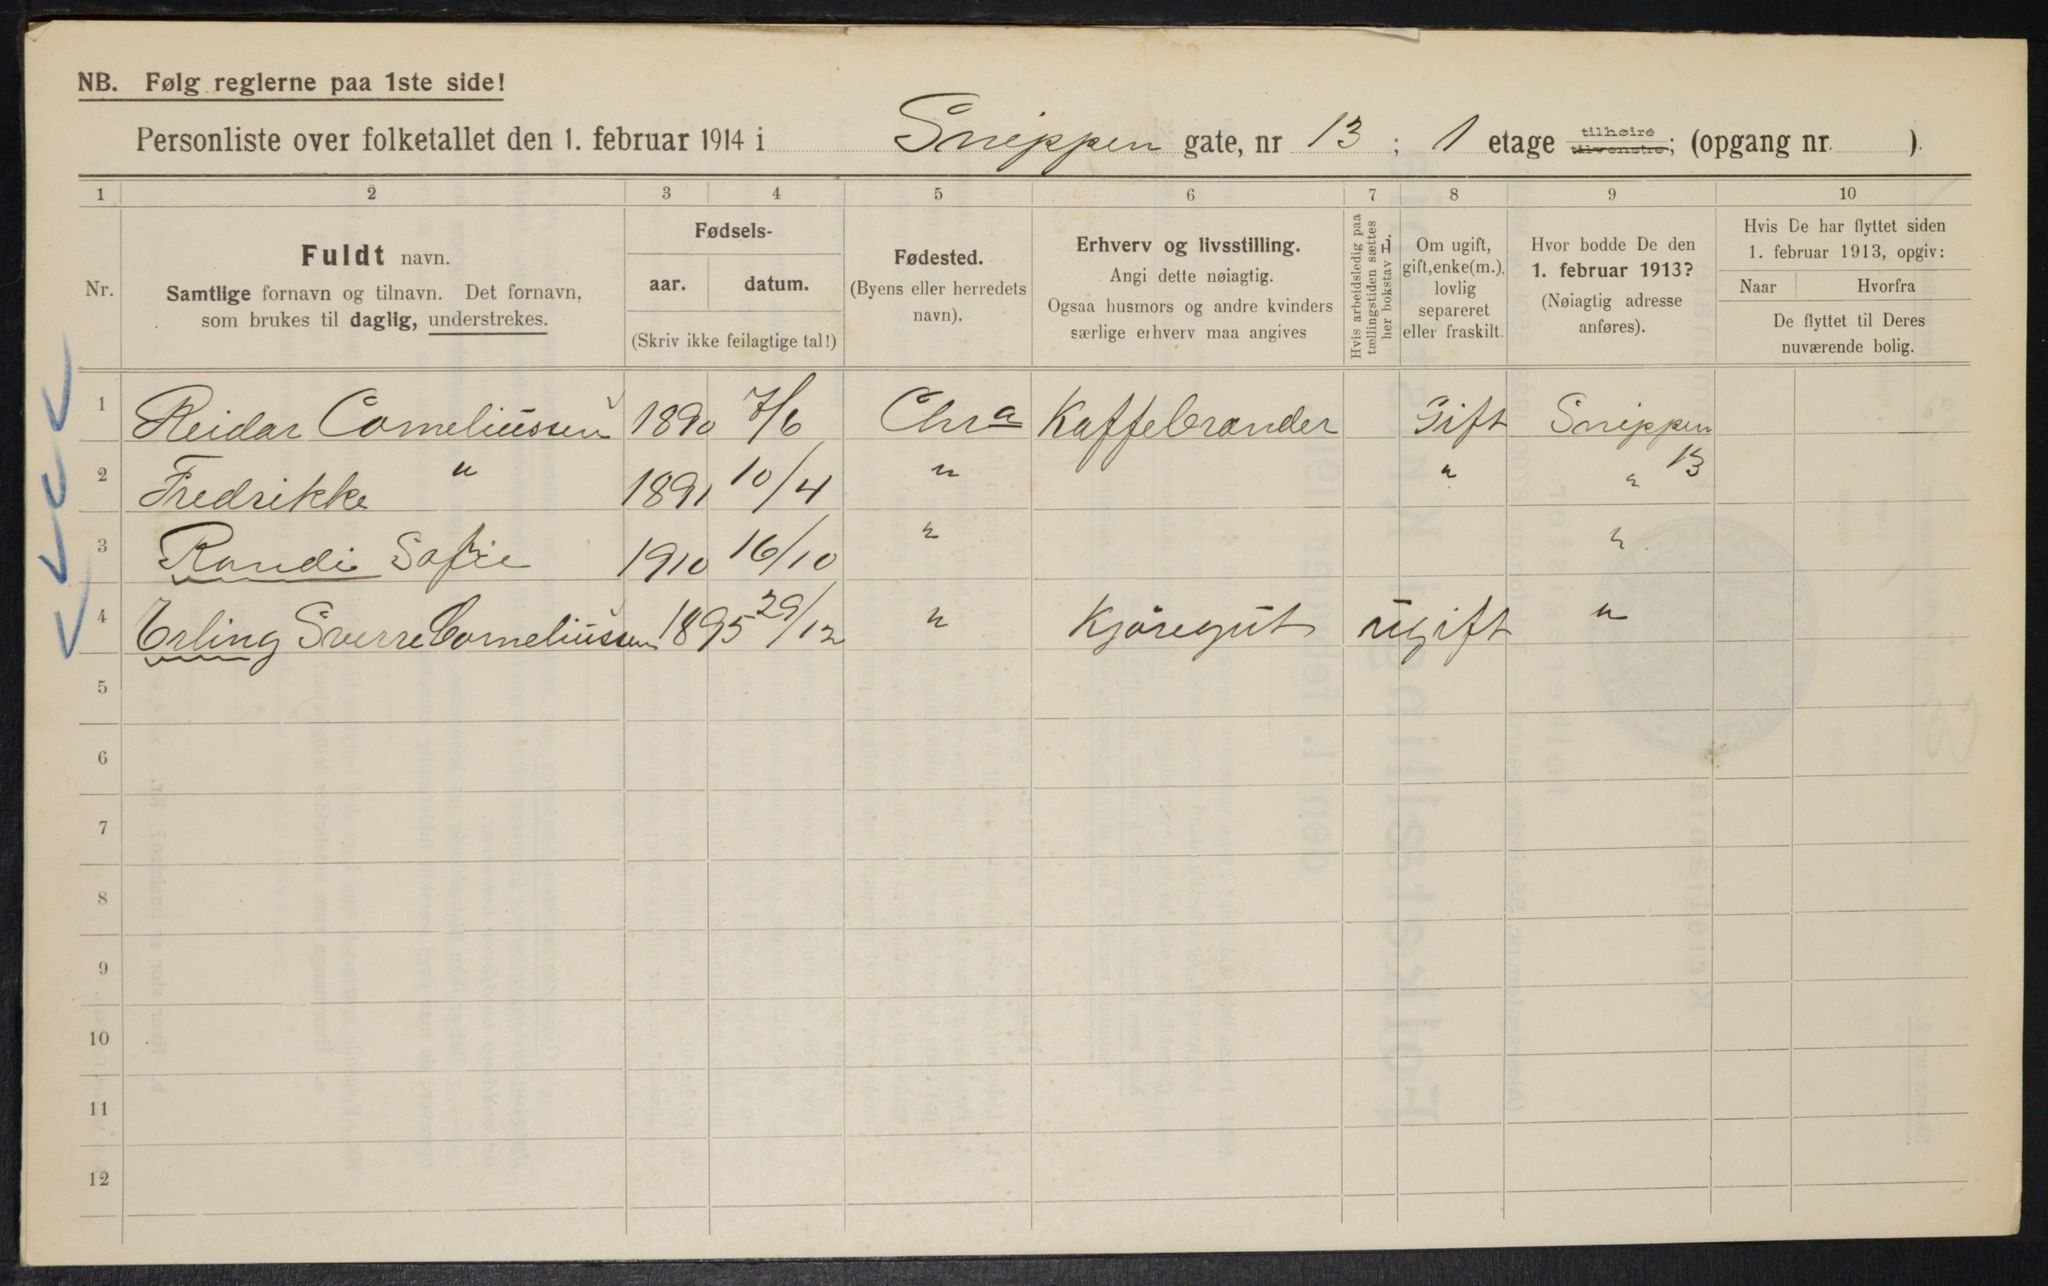 NB. Følg reglerne paa 1ste side!
Personliste over folketallet den 1. februar 1914 i Snippen gate, nr 13 ; 1 etage tilhøire tilvenstre; (opgang nr. ).
1 2 3 4 5 6 7 8 9 10
Nr.
Fuldt navn.
Samtlige fornavn og tilnavn. Det fornavn,
som brukes til daglig, understrekes.
Fødsels-
aar. datum.
(Skriv ikke feilagtige tal!)
Fødested.
(Byens eller herredets
navn).
Erhverv og livsstilling.
Angi dette nøiagtig.
Ogsaa husmors og andre kvinders
særlige erhverv maa angives
Hvis arbeidsledig paa
tællingstiden sættes
her bokstav L.
Om ugift,
gift, enke(m.),
lovlig
separeret
eller fraskilt.
Hvor bodde De den
1. februar 1913?
(Nøiagtig adresse
anføres).
Hvis De har flyttet siden
1. februar 1913, opgiv:
Naar Hvorfra
De flyttet til Deres
nuværende bolig.
1 Reidar Corneliussen 1890 7/6 Chra Kaffebrænder Gift Snippen 13
2 Fredrikke " 1891 10/4 " " "
3 Randi Sofie 1910 16/10 " "
4 Erling Sverre Corneliussen 1895 29/12 " Kjöregut ugift "
5
6
7
8
9
10
11
12